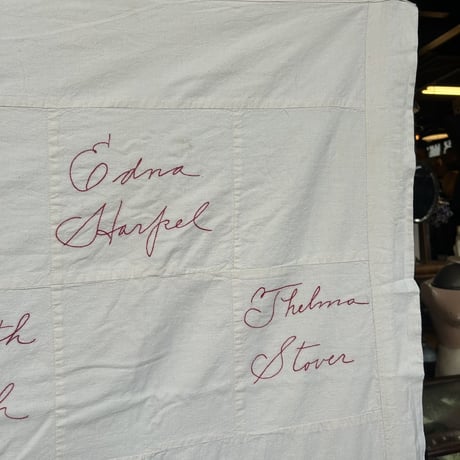 Edna
Harpel
Thelma
Stover